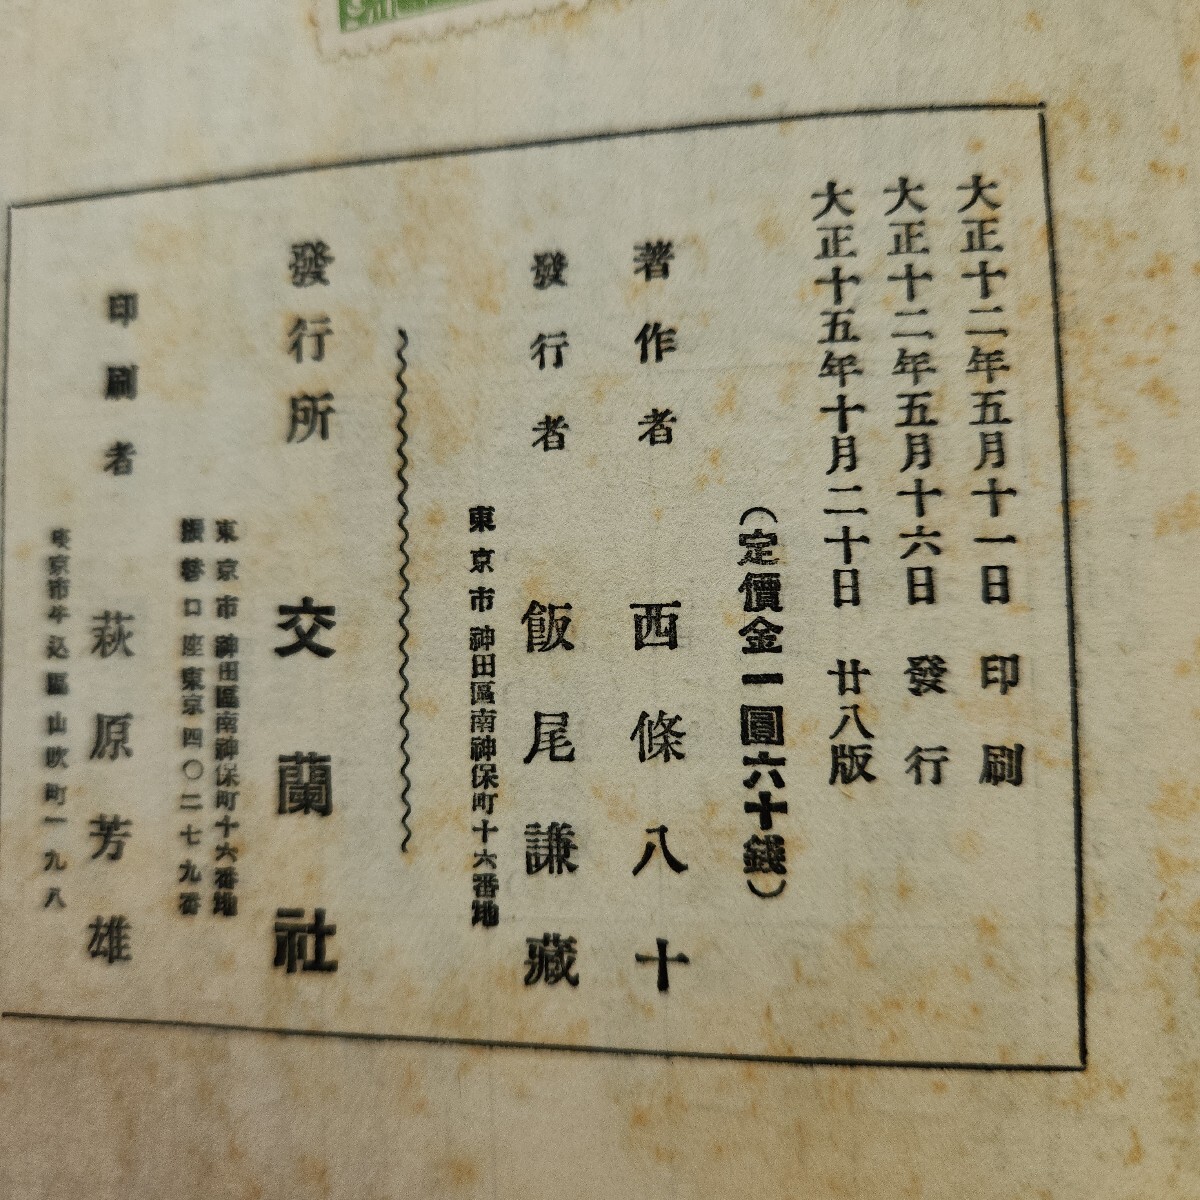 大正十二年五月十一日　印刷
大正十二年五月十六日　發行
大正十五年十月二十日　廿八版
（定價金一圓六十錢）
著作者　西條八十
發行者　飯尾謙藏
東京市神田區南神保町十六番地
發行所　交蘭社
東京市神田區南神保町十六番地
振替口座東京四〇二七九番
印刷者　萩原芳雄
東京市牛込區山吹町一九八